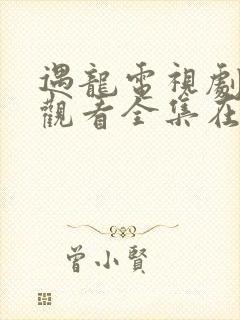 遇龍電視劇
觀看全集在
曾小賢